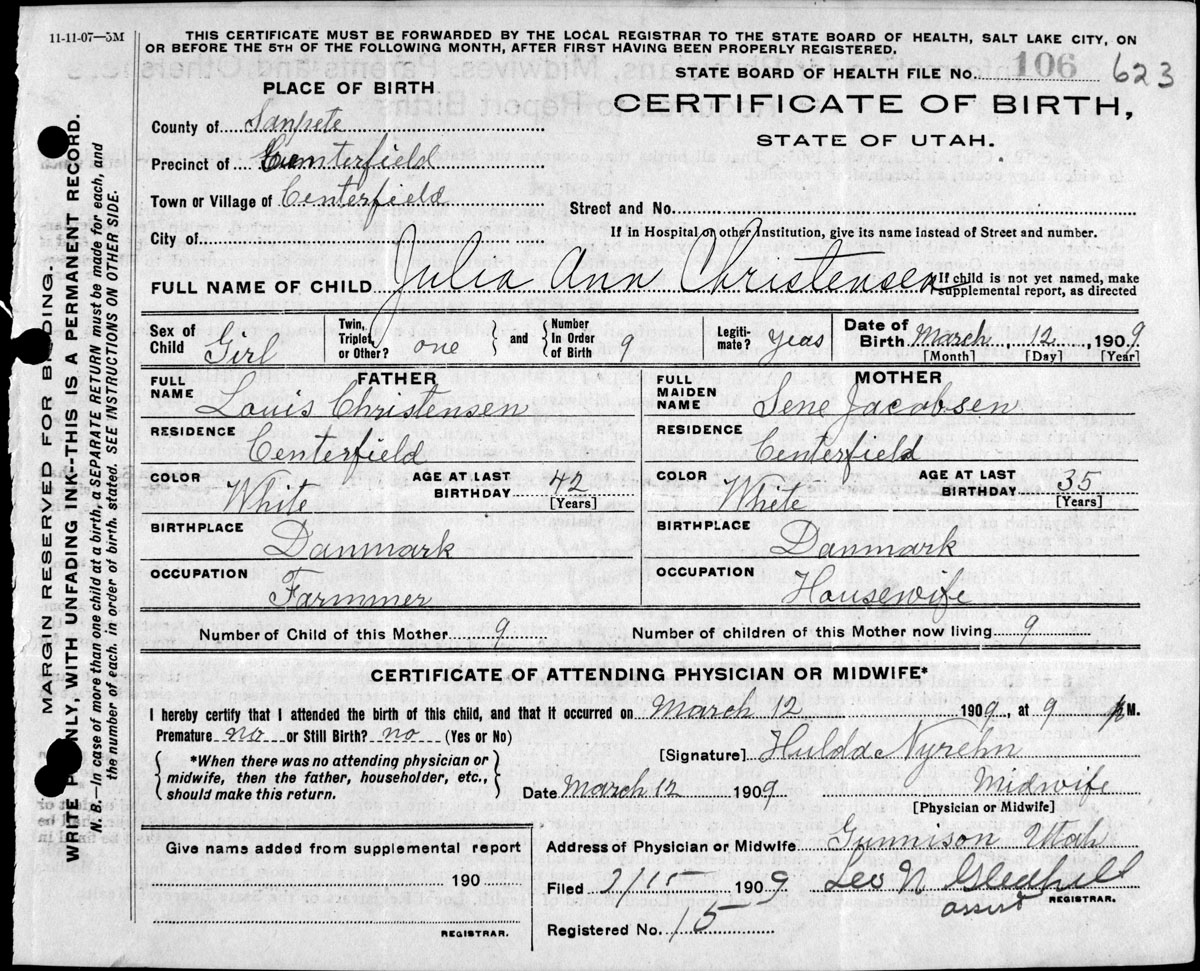 11-11-07—5M
THIS CERTIFICATE MUST BE FORWARDED BY THE LOCAL REGISTRAR TO THE STATE BOARD OF HEALTH, SALT LAKE CITY, ON
OR BEFORE THE 5TH OF THE FOLLOWING MONTH, AFTER FIRST HAVING BEEN PROPERLY REGISTERED.
STATE BOARD OF HEALTH FILE No. 106 623
PLACE OF BIRTH
CERTIFICATE OF BIRTH,
STATE OF UTAH.
County of Sanpete
Precinct of Centerfield
Town or Village of Centerfield
Street and No.
City of
If in Hospital or other Institution, give its name instead of Street and number.
FULL NAME OF CHILD Julia Ann Christensen
If child is not yet named, make
supplemental report, as directed
Sex of Child Girl
Twin, Triplet, or Other? one and Number In Order of Birth 9
Legitimate? yeas
Date of Birth March 12, 1909
[Month] [Day] [Year]
FATHER
FULL NAME Louis Christensen
RESIDENCE Centerfield
COLOR White AGE AT LAST BIRTHDAY 42
[Years]
BIRTHPLACE Danmark
OCCUPATION Farmmer
MOTHER
FULL MAIDEN NAME Sene Jacobsen
RESIDENCE Centerfield
COLOR White AGE AT LAST BIRTHDAY 35
[Years]
BIRTHPLACE Danmark
OCCUPATION Housewife
Number of Child of this Mother 9 Number of children of this Mother now living 9
CERTIFICATE OF ATTENDING PHYSICIAN OR MIDWIFE*
I hereby certify that I attended the birth of this child, and that it occurred on March 12 1909, at 9 M.
Premature no or Still Birth? no (Yes or No)
*When there was no attending physician or
midwife, then the father, householder, etc.,
should make this return.
[Signature] Hulda Nyrehn
Date March 12 1909 Midwife
[Physician or Midwife]
Give name added from supplemental report
190
REGISTRAR.
Address of Physician or Midwife Gunnison Utah
Filed 3/15 1909 Leo N Gledhill
assist REGISTRAR.
Registered No. 15
MARGIN RESERVED FOR BINDING.
WRITE PLAINLY, WITH UNFADING INK--THIS IS A PERMANENT RECORD.
N. B.—In case of more than one child at a birth, a SEPARATE RETURN must be made for each, and
the number of each, in order of birth, stated. SEE INSTRUCTIONS ON OTHER SIDE.